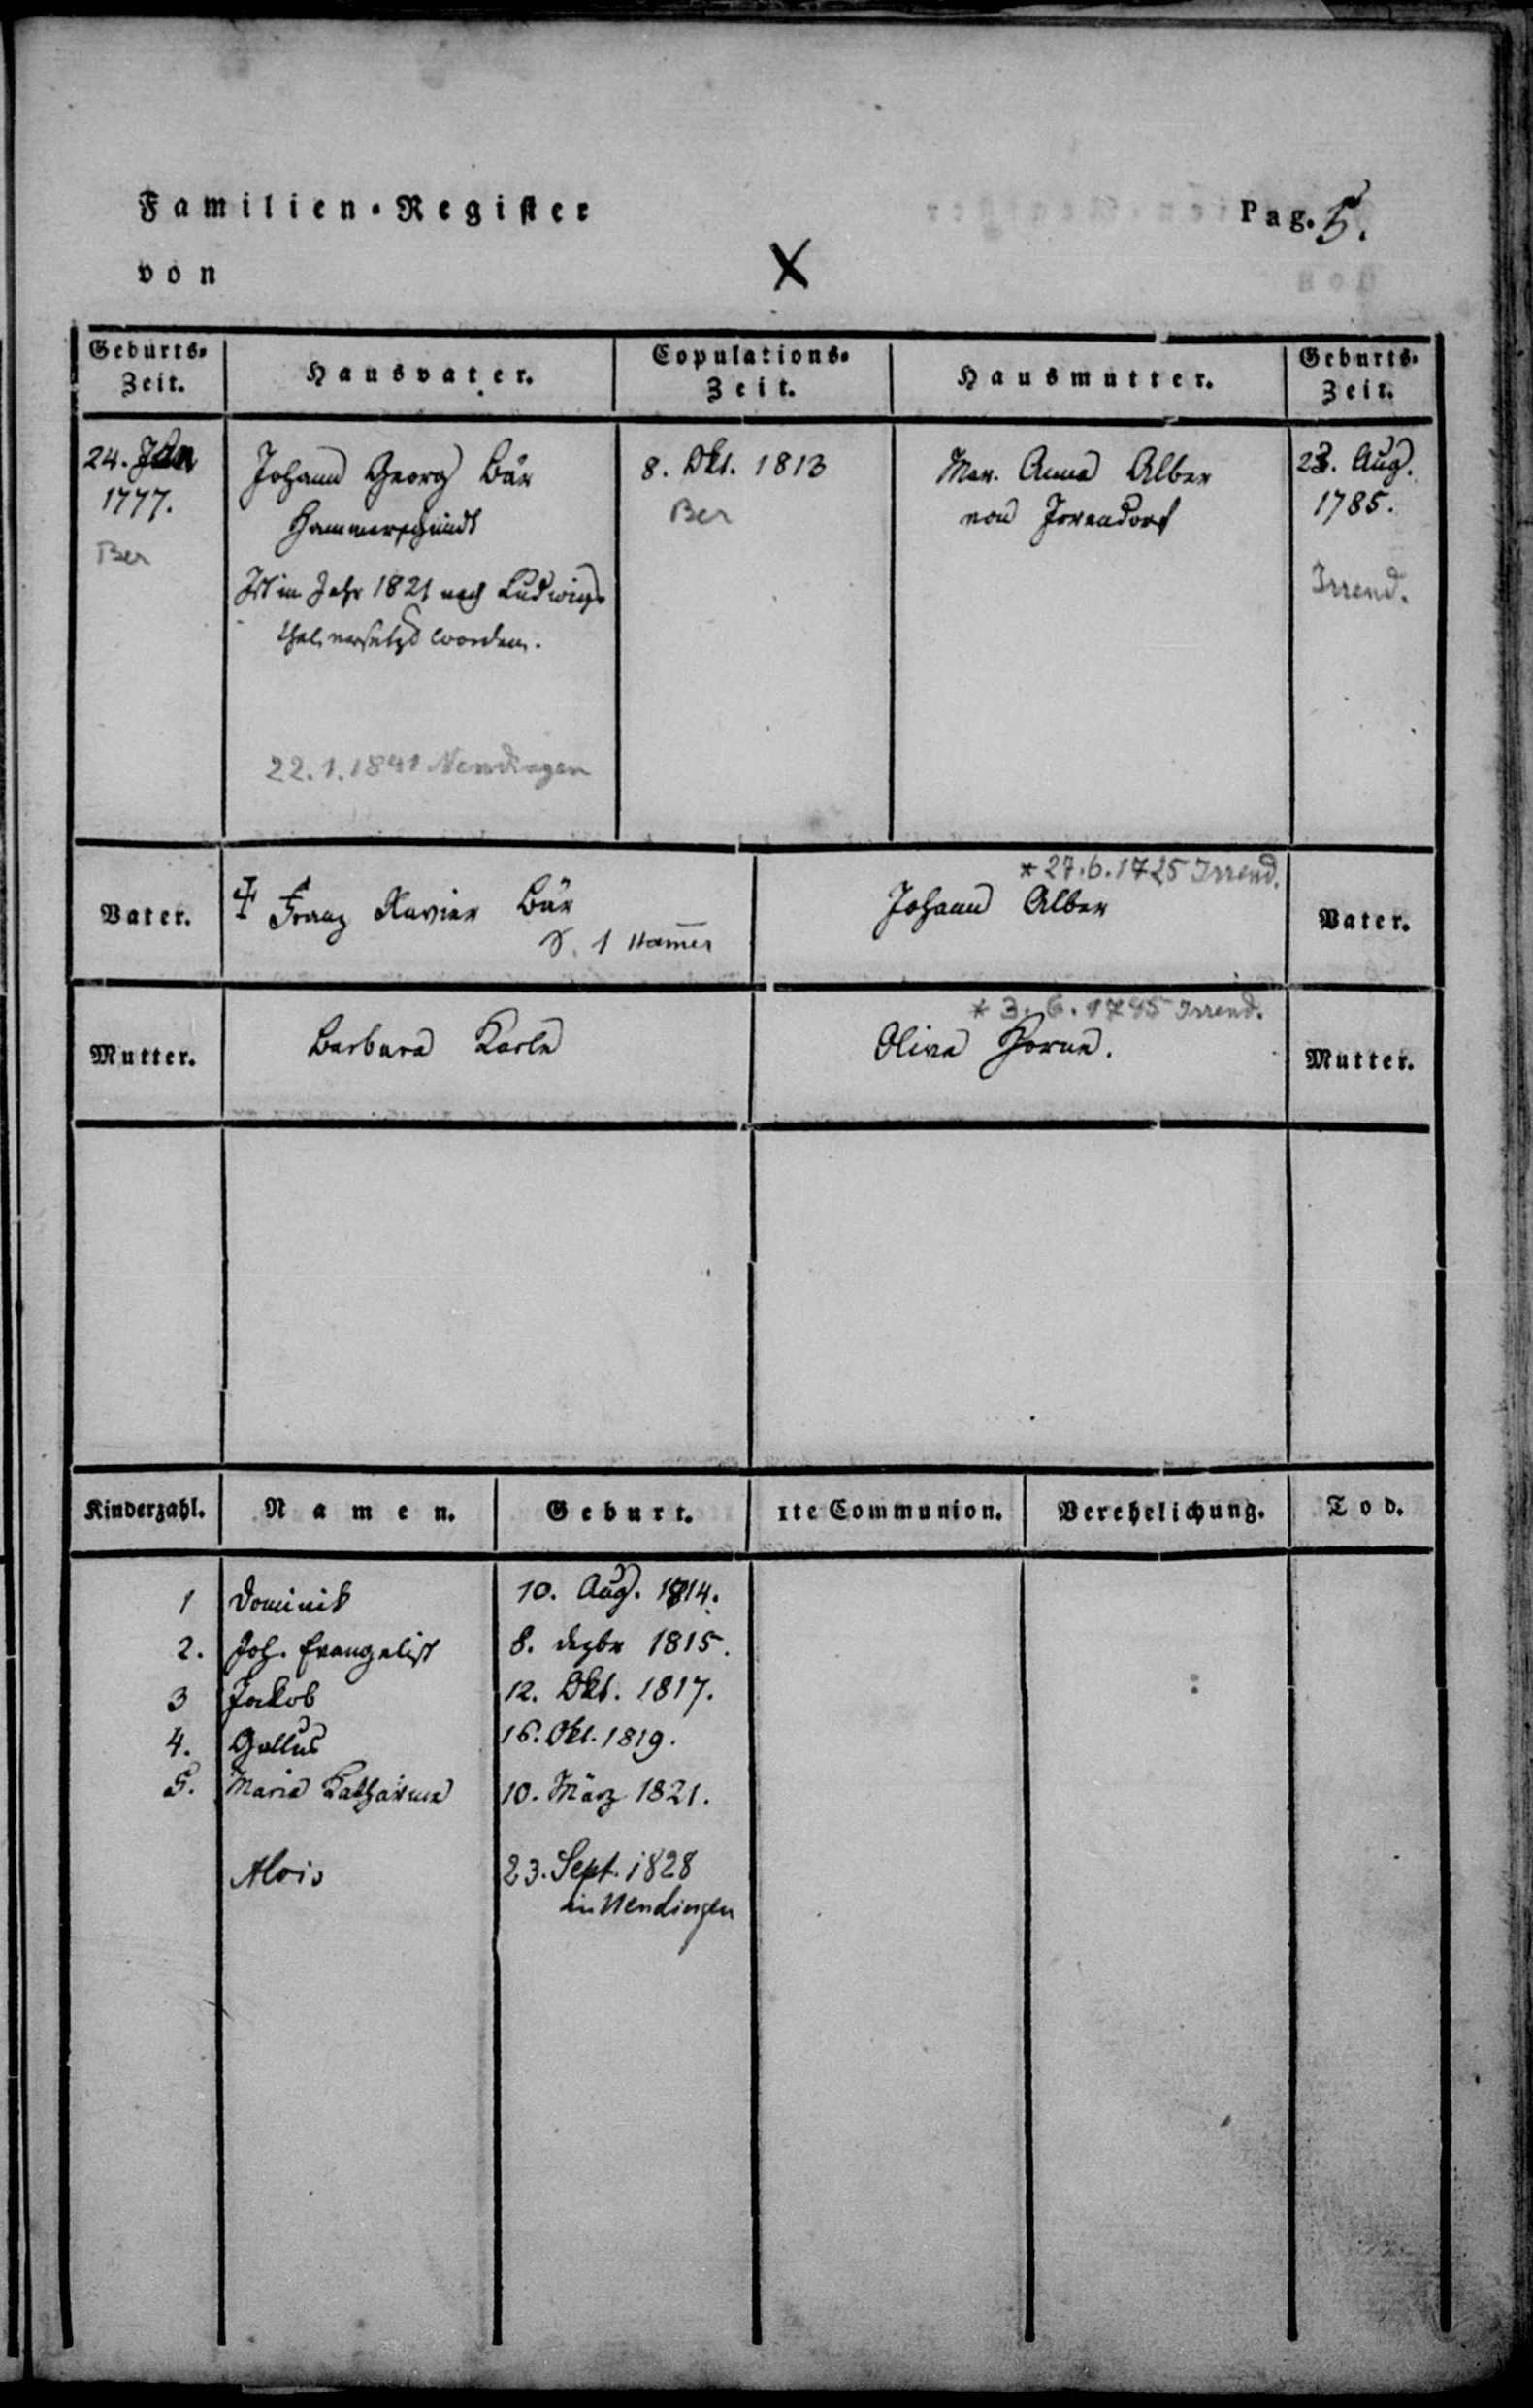 Familien-Register
Pag. 5.
von
X
Geburts-Zeit.
Hausvater.
Copulations-Zeit.
Hausmutter.
Geburts-Zeit.
24. Jan
1777.
Ber
Johann Georg Bär
Hammerschmidt
Ist im Jahr 1821 nach Ludwigs-
thal versetzt worden.
22.1.1841 Nendingen
8. Okt. 1813
Ber
Mar. Anna Alber
von Irrendorf
23. Aug.
1785.
Irrend.
Vater.
Franz Xavier Bär
S. 1 Ham̅er
* 27.6.1725 Irrend.
Johann Alber
Vater.
Mutter.
Barbara Karle
* 3.6.1745 Irrend.
Oliva Horne.
Mutter.
Kinderzahl.
Namen.
Geburt.
1te Communion.
Verehelichung.
Tod.
1 Dominik 10. Aug. 1814.
2. Joh. Evangelist 8. Dezbr 1815.
3 Jakob 12. Okt. 1817.
4. Gallus 16. Okt. 1819.
5. Maria Katharina 10. März 1821.
Alois 23. Sept. 1828
in Nendingen